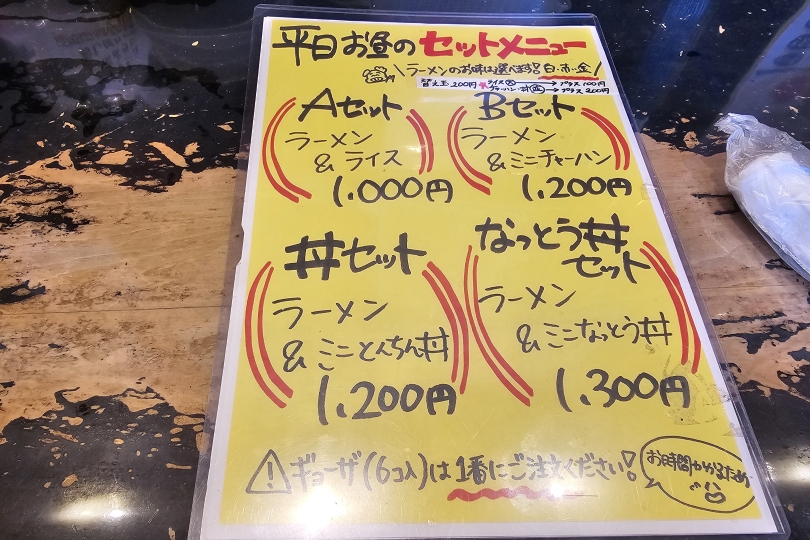 平日お昼のセットメニュー
ラーメンのお味は選べます 白・赤・金
替え玉 200円
ライス大 → プラス100円
チャーハン・丼 → プラス200円
Aセット
ラーメン
& ライス
1.000円
Bセット
ラーメン
& ミニチャーハン
1.200円
丼セット
ラーメン
& ミニとんちん丼
1.200円
なっとう丼
セット
ラーメン
& ミニなっとう丼
1.300円
ギョーザ(6コ入)は1番にご注文ください!
お時間かかるため